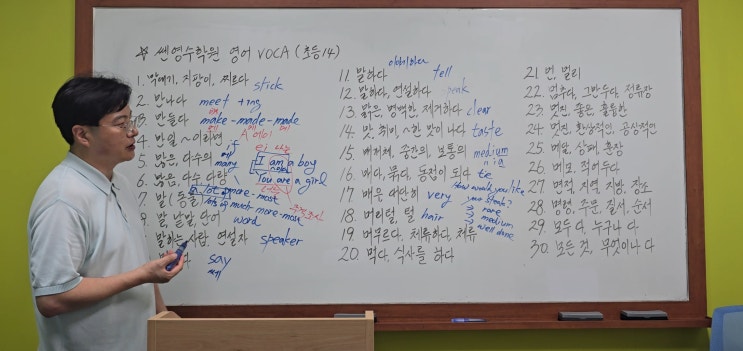 ☆ 쎈영수학원 영어 VOCA (초등14)
1. 막대기, 지팡이, 찌르다 stick
2. 만나다 meet +ing
3. 만들다 make-made-made
4. 만일 ~이라면 if
A 에이
5. 많은, 다수의 many
I am a boy
6. 많은, 다소 다량
You are a girl
lot more-most
much-more-most
8. 말, 낱말, 단어 word
말하는 사람, 연설자 speaker
say
11. 말하다 tell
12. 말하다, 연설하다 speak
13. 맑은, 명백한, 제거하다 clear
14. 맛, 취미, ~한 맛이 나다 taste
15. 매개체, 중간의, 보통의 medium
16. 매다, 묶다, 동점이 되다 tie
17. 매우, 대단히 very
How would you like
your steak?
→ rare
→ medium
→ well done
18. 머리털, 털 hair
19. 머무르다, 체류하다, 체류
20. 먹다, 식사를 하다
21. 먼, 멀리
22. 멈추다, 그만두다, 정류장
23. 멋진, 좋은, 훌륭한
24. 멋진, 환상적인, 공상적인
25. 메달, 상패, 훈장
26. 메모, 적어두다
27. 면적, 지역, 지방, 장소
28. 명령, 주문, 질서, 순서
29. 모두 다, 누구나 다
30. 모든 것, 무엇이나 다